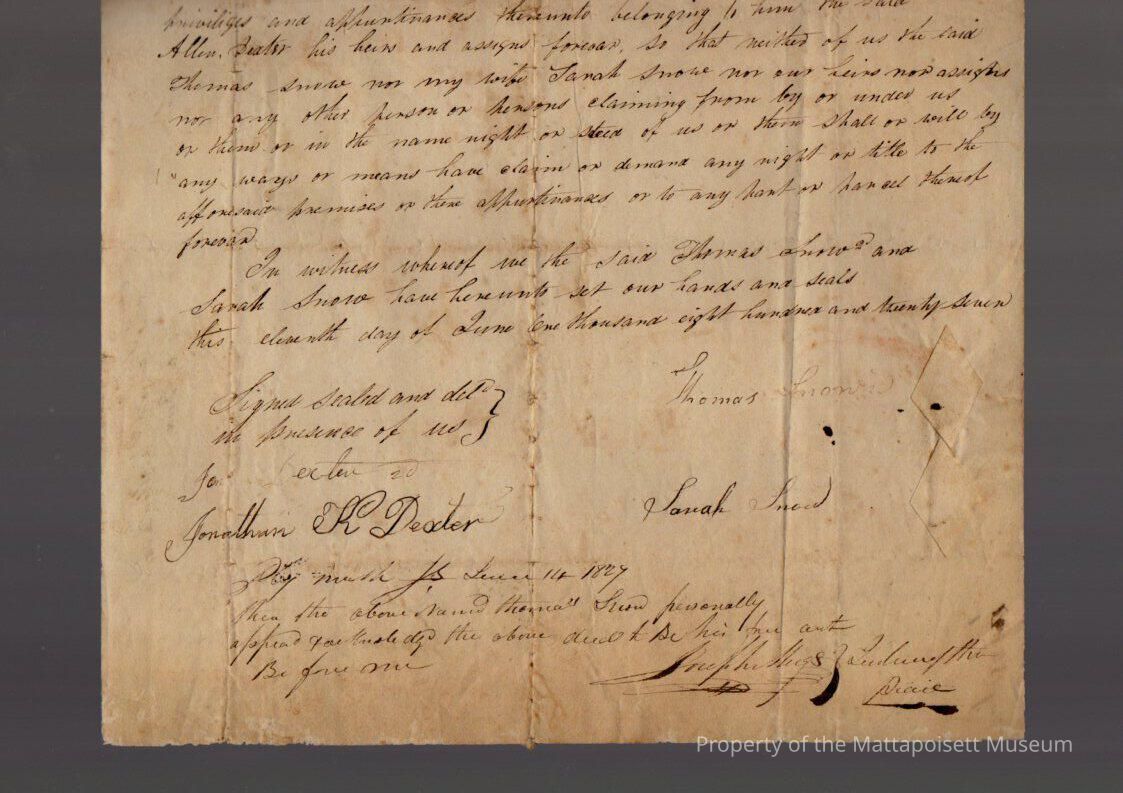 priviliges and appurtinances thereunto belonging to him the said
Allen Dexter his heirs and assigns forevar, so that neither of us the said
Thomas Snow nor my wife Sarah Snow nor our heirs nor assigns
nor any other person or persons claiming from by or under us
or them or in the name right or steed of us or them shall or will by
any ways or means have claim or demand any right or title to the
afforesaid premises or there appurtinances or to any part or parcel thereof
forevar
In witness whereof we the said Thomas Snow and
Sarah Snow have hereunto set our hands and seals
this eleventh day of June One thousand eight hundred and twenty-seven
Signed sealed and deld
in presence of us
Thomas Snow
exter 2d
Jonathan K Dexter
Sarah Snow
Plymouth June 14 1827
then the above Named thomas Snow personally
appead & acknoledgd the above deed to Be his free act
Be fore me
Joseph Justice of the
Peace
Property of the Mattapoisett Museum